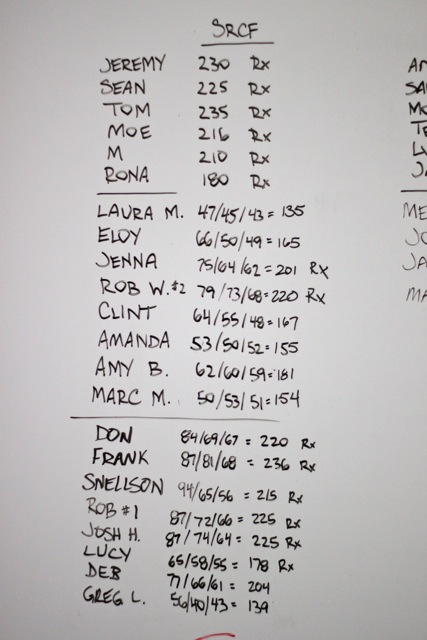 SRCF
JEREMY 230 Rx
SEAN 225 Rx
TOM 235 Rx
MOE 216 Rx
M 210 Rx
RONA 180 Rx
LAURA M. 47/45/43 = 135
ELOY 66/50/49 = 165
JENNA 75/64/62 = 201 Rx
ROB W. #2 79/73/68 = 220 Rx
CLINT 64/55/48 = 167
AMANDA 53/50/52 = 155
AMY B. 62/60/59 = 181
MARC M. 50/53/51 = 154
DON 84/69/67 = 220 Rx
FRANK 87/81/68 = 236 Rx
SNELLSON 94/65/56 = 215 Rx
ROB #1 87/72/66 = 225 Rx
JOSH H. 87/74/64 = 225 Rx
LUCY 65/58/55 = 178 Rx
DEB 77/66/61 = 204
GREG L. 56/40/43 = 139